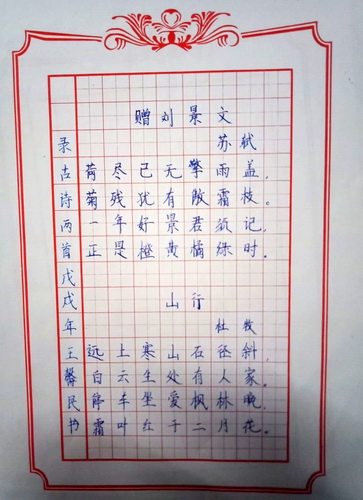 赠刘景文
苏轼
荷尽已无擎雨盖，
菊残犹有傲霜枝。
一年好景君须记，
正是橙黄橘绿时。
山行
杜牧
远上寒山石径斜，
白云生处有人家。
停车坐爱枫林晚，
霜叶红于二月花。
录古诗两首戊戌年王馨民书